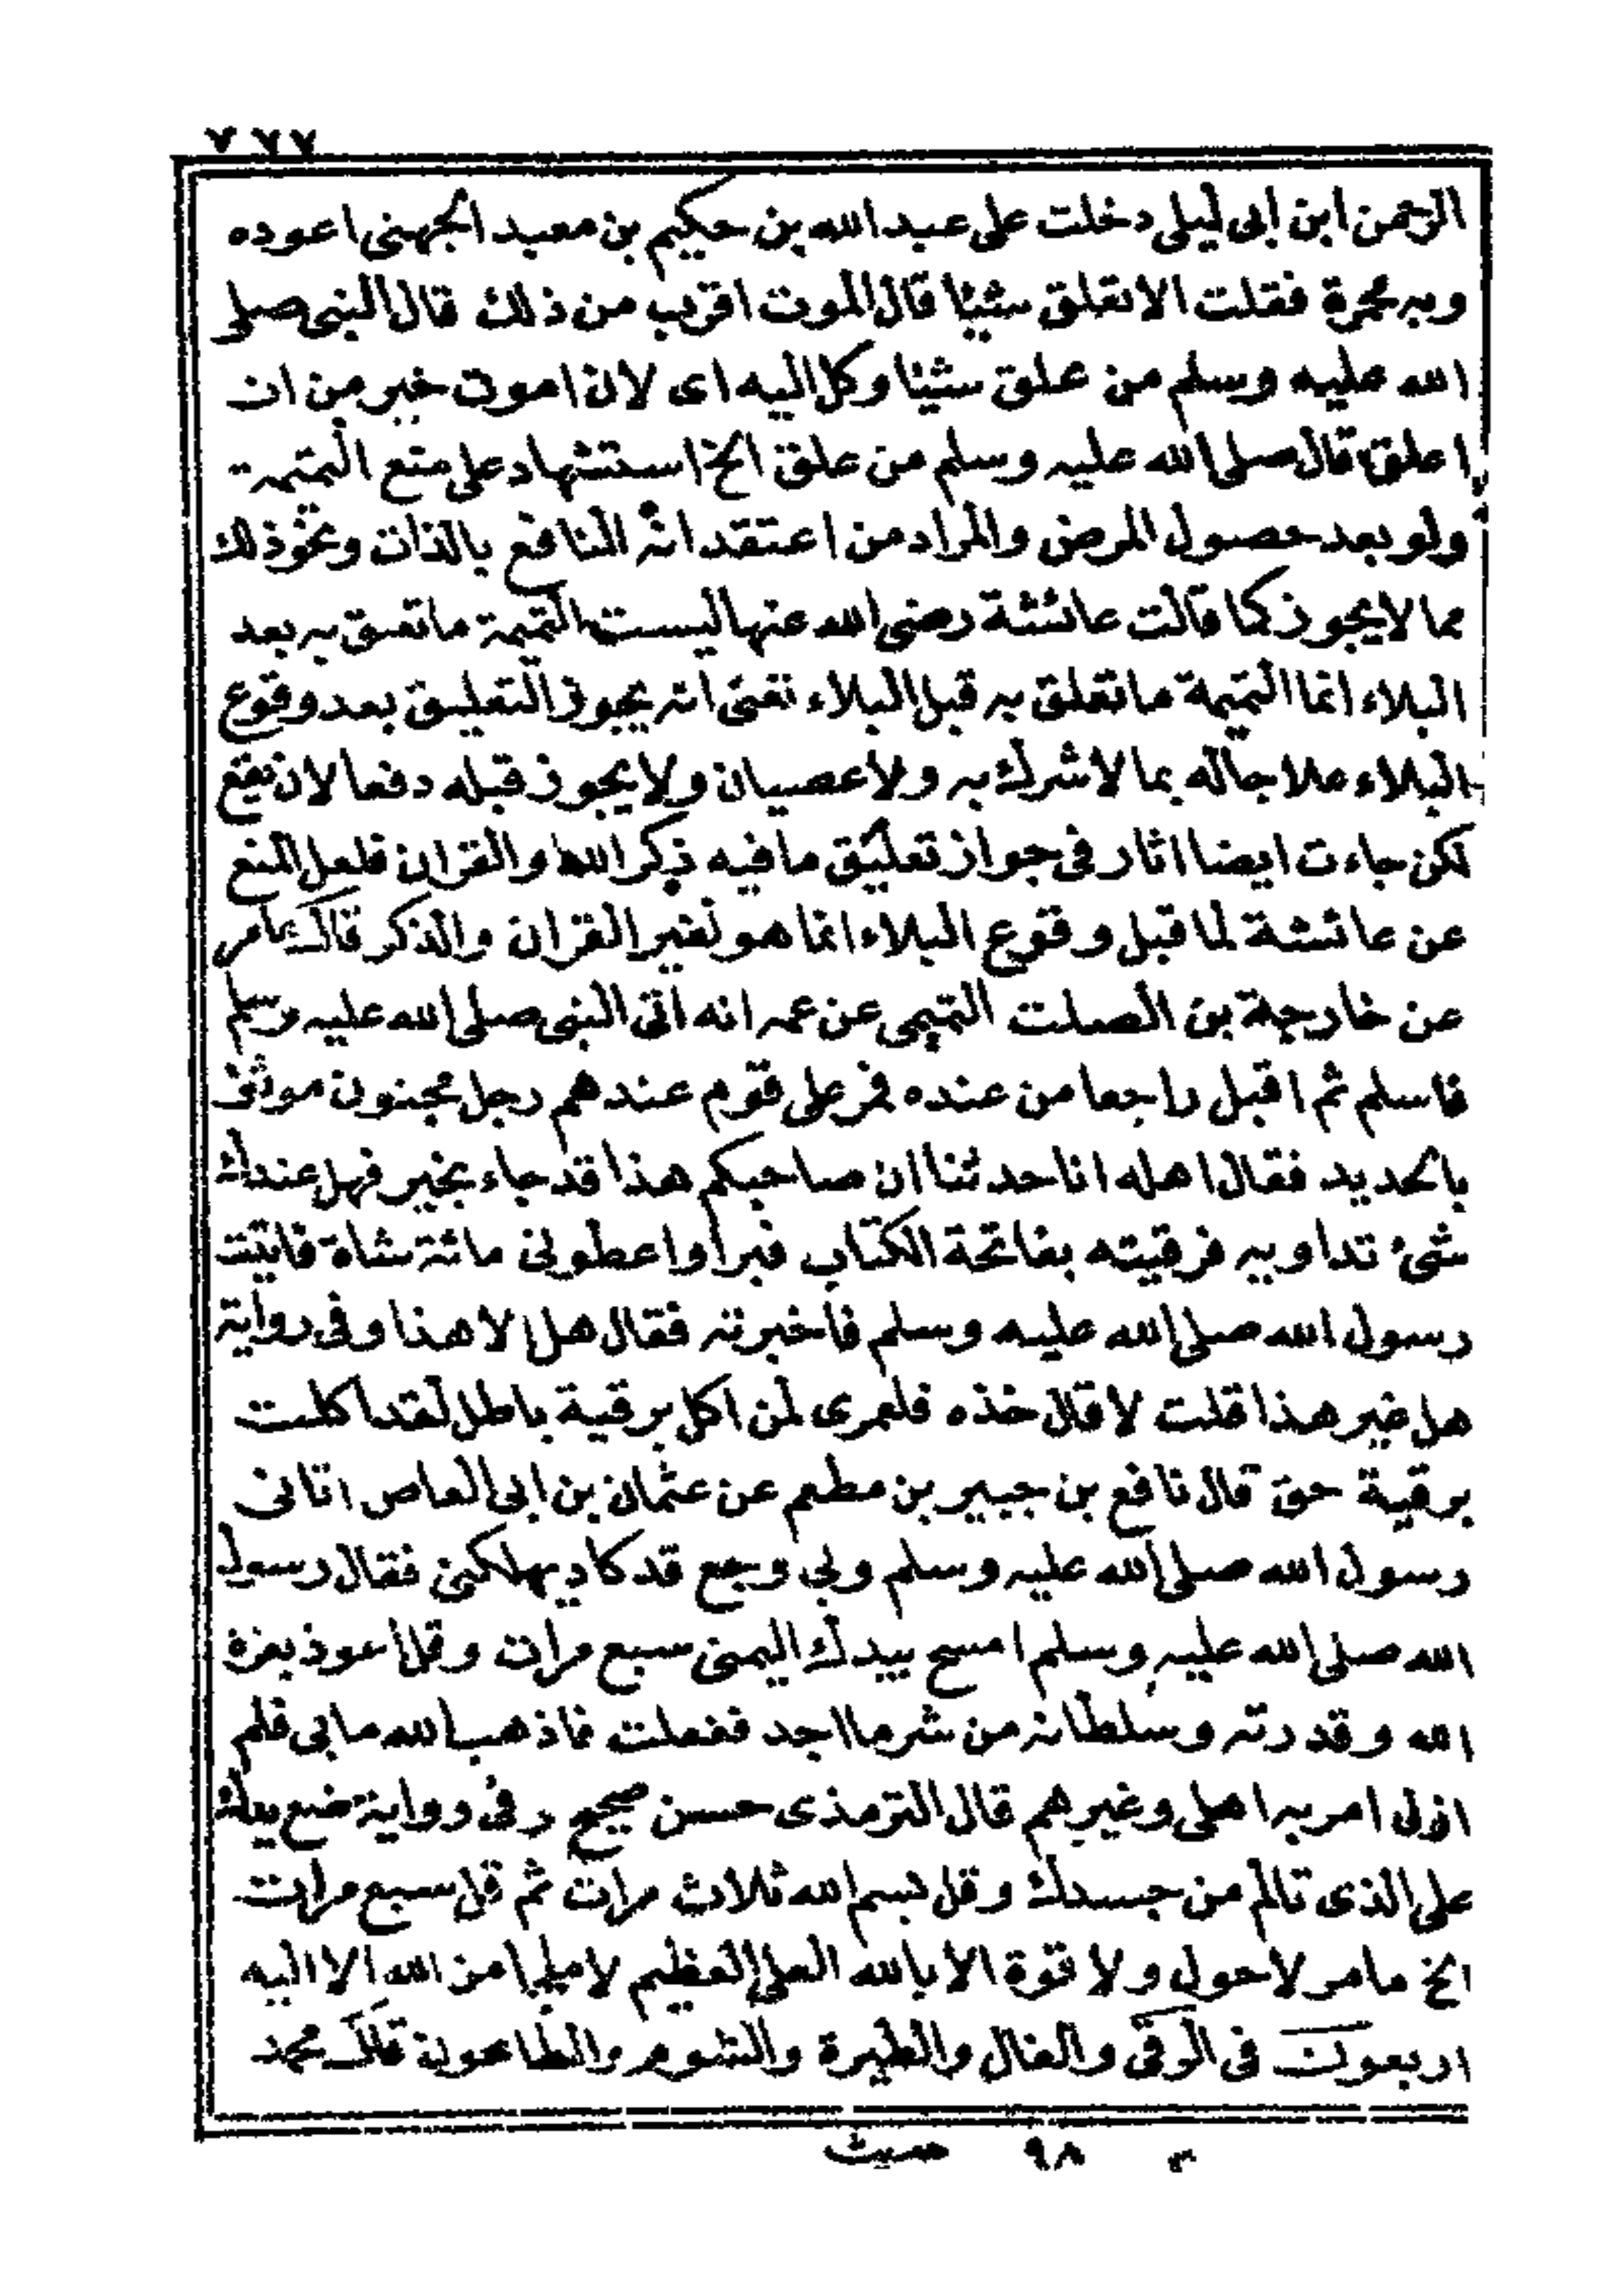 ٧٧٧
الرحمن ابن ابى ليلى دخلت على عبد الله بن حكيم بن معبد الجهنى اعوده
وبه محمرة فقلت الا نعلق شيئا قال الموت اقرب من ذلك قال النبى صلى
الله عليه وسلم من علق شيئا وكل اليه اى لان اموت خير من ان
اعلق، قال صلى الله عليه وسلم من علق الخ استشهاد على منع التميمة
ولو بعد حصول المرض والمراد من اعتقد انه النافع بالذات ونحو ذلك
مما لا يجوز كما قالت عائشة رضى الله عنها ليست التميمة ما تعلق به بعد
البلاء انما التميمة ما تعلق به قبل البلاء تعنى انه يجوز التعليق بعد وقوع
البلاء علاجا له بما لا شرك به ولا عصيان ولا يجوز قبله دفعا لان يقع
لكن جاءت ايضا اثار فى جواز تعليق ما فيه ذكر الله والقران فلعل المنع
عن عائشة لما قبل وقوع البلاء انما هو لغير القران والذكر قال عامر
عن خارجة بن الصلت التميمى عن عمه انه اتى النبى صلى الله عليه وسلم
فاسلم ثم اقبل راجعا من عنده فمر على قوم عندهم رجل مجنون موثق
بالحديد فقال اهله انا حدثنا ان صاحبكم هذا قد جاء بخير فهل عندك
شئ تداويه فرقيته بفاتحة الكتاب فبرأ واعطونى مائة شاة فاتيت
رسول الله صلى الله عليه وسلم فاخبرته فقال هل إلا هذا وفى رواية
هل غير هذا قلت لا قال خذه فلعمرى لمن اكل برقية باطل لقد اكلت
برقية حق قال نافع بن جبير بن مطعم عن عثمان بن ابى العاص اتانى
رسول الله صلى الله عليه وسلم وبى وجع قد كاد يهلكنى فقال رسول
الله صلى الله عليه وسلم امسح بيدك اليمنى سبع مرات وقل أعوذ بعزة
الله وقدرته وسلطانه من شر ما اجد ففعلت فاذهب الله ما بى فلم
ازل امر به اهلى وغيرهم قال الترمذى حسن صحيح وفى وواية ضع يدك
على الذى تالم من جسدك وقل بسم الله ثلاث مرات ثم قل سبع مرات
الخ ما مر لا حول ولا قوة الا بالله العلى العظيم لا ملجا من الله الا اليه
اربعون فى الرقى والفال والطيرة والشوم والطاعون قال محمد
م ٩٨ حديث